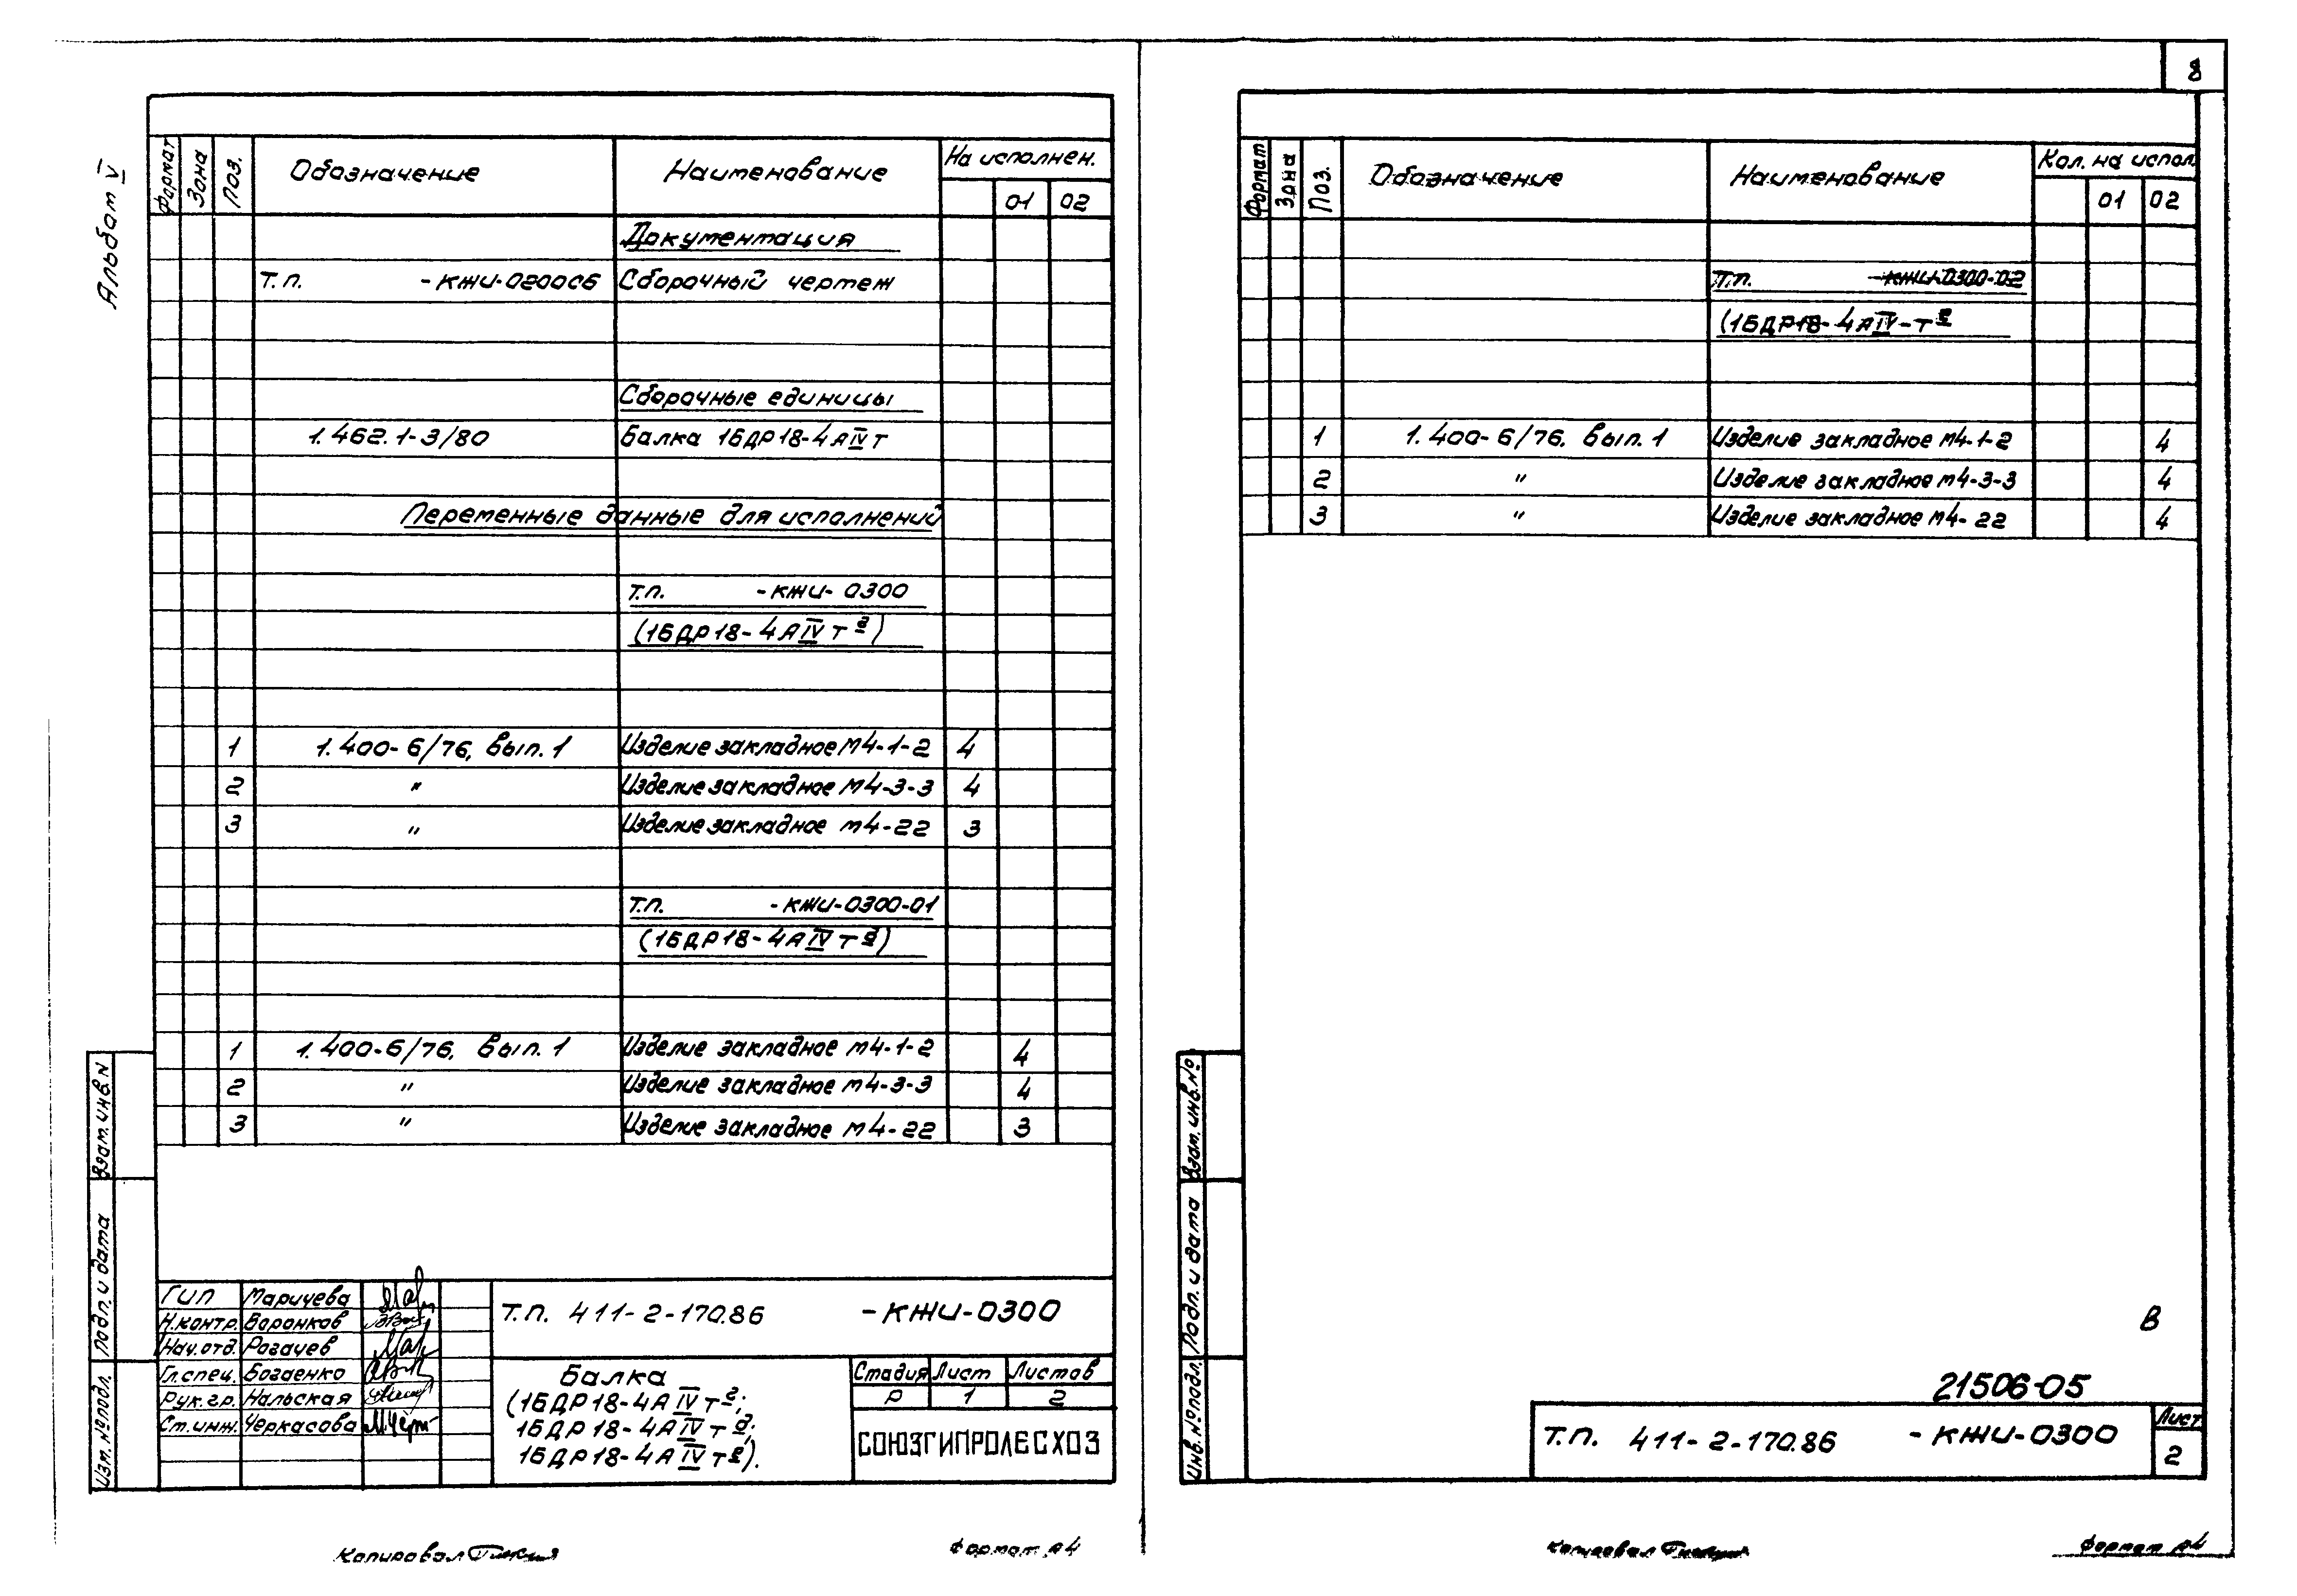 Альбом V
Формат Зона Поз. Обозначение Наименование На исполнен.
01 02
Документация
Т.П. -КЖИ-0200СБ Сборочный чертеж
Сборочные единицы
1.462.1-3/80 Балка 1БДР18-4АIVТ
Переменные данные для исполнений
Т.П. -КЖИ-0300
(1БДР18-4АIVТ г)
1 1.400-6/76, Вып.1 Изделие закладное М4-1-2 4
2 " Изделие закладное М4-3-3 4
3 " Изделие закладное М4-22 3
Т.П. -КЖИ-0300-01
(1БДР18-4АIVТ д)
1 1.400-6/76, Вып.1 Изделие закладное М4-1-2 4
2 " Изделие закладное М4-3-3 4
3 " Изделие закладное М4-22 3
Взам. инв. N
Подп. и дата
Изм. № подл.
ГИП Маричева
Н.контр. Воронков
Нач.отд. Рогачев
Гл.спец. Богаенко
Рук.гр. Нальская
Ст.инж. Черкасова
Т.П. 411-2-170.86 -КЖИ-0300
Балка
(1БДР18-4АIVТ г;
1БДР18-4АIVТ д;
1БДР18-4АIVТ е).
Стадия Лист Листов
Р 1 2
СОЮЗГИПРОЛЕСХОЗ
Копировал
Формат А4
8
Формат Зона Поз. Обозначение Наименование Кол. на испол.
01 02
Т.П. -КЖИ-0300-02
(1БДР18-4АIV-Т е
1 1.400-6/76. Вып.1 Изделие закладное М4-1-2 4
2 " Изделие закладное М4-3-3 4
3 " Изделие закладное М4-22 4
Взам. инв. №
Подп. и дата
Инв. № подл.
В
21506-05
Т.П. 411-2-170.86 -КЖИ-0300
Лист
2
Копировал
Формат А4